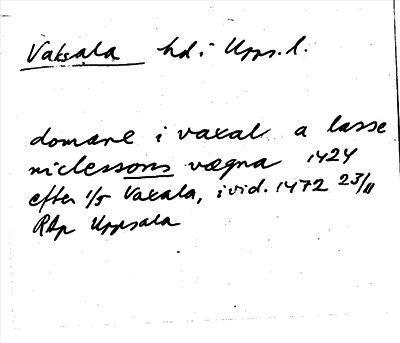 Vaksala hd i Upps. l.
domare i vaxal a lasse
niclessons vægna 1424
efter 1/5 Vaxala, i vid. 1472 23/11
RAp Uppsala